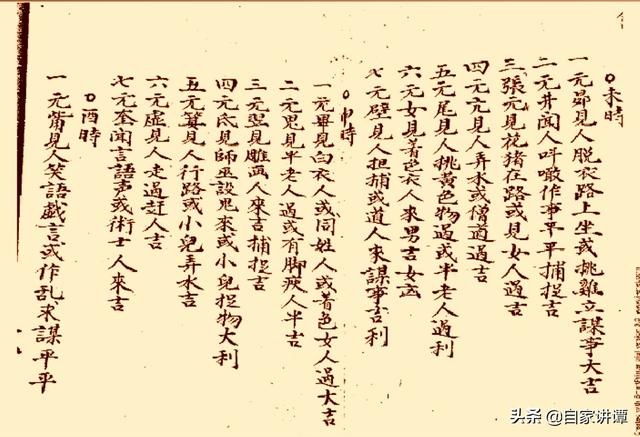 未時
一元昴見人脱衣路上坐或挑雞立謀事大吉
二元井闻人呌噉作事平平捕捉吉
三張元見花猪在路或見女人過吉
四元亢見人弄水或僧道過吉
五元尾見人挑黄色物過或半老人過利
六元女見着色衣人來男吉女凶
七元壁見人担捕或道人來謀事吉利
申時
一元畢見白衣人或同姓人或着色女人過大吉
二元鬼見半老人過或有脚疾人半吉
三元翌見雕画人來吉捕捉吉
四元氐見師巫設鬼來或小兒捉物大利
五元箕見人行路或小兒弄水吉
六元虚見人走過赶人吉
七元奎闻言語声或術士人來吉
酉時
一元觜見人笑語戯言或作乱求謀平平
头条 @自家讲谭